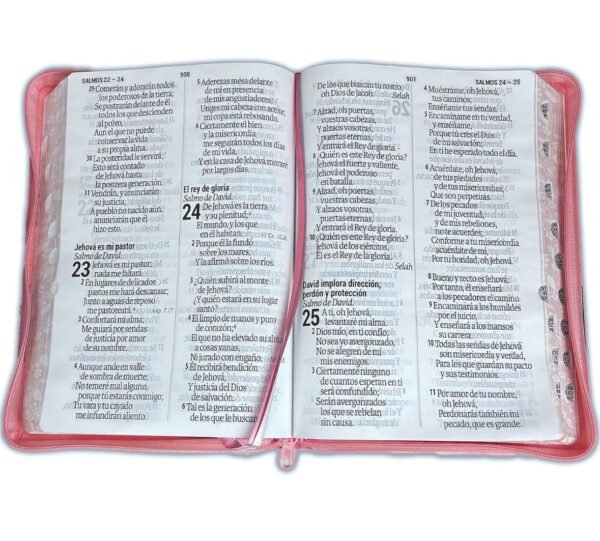 SALMOS 22 – 24
900
29 Comerán y adorarán todos
los poderosos de la tierra;
Se postrarán delante de él
todos los que descienden
al polvo,
Aun el que no puede
conservar la vida
a su propia alma.
30 La posteridad le servirá;
Esto será contado
de Jehová hasta
la postrera generación.
31 Vendrán, y anunciarán
su justicia;
A pueblo no nacido aún,
anunciarán que él
hizo esto.
Jehová es mi pastor
Salmo de David.
23 Jehová es mi pastor;
nada me faltará.
2 En lugares de delicados
pastos me hará descansar;
Junto a aguas de reposo
me pastoreará.
3 Confortará mi alma;
Me guiará por sendas
de justicia por amor
de su nombre.
4 Aunque ande en valle
de sombra de muerte,
No temeré mal alguno,
porque tú estarás conmigo;
Tu vara y tu cayado
me infundirán aliento.
5 Aderezas mesa delante
de mí en presencia
de mis angustiadores;
Unges mi cabeza con aceite;
mi copa está rebosando.
6 Ciertamente el bien
y la misericordia
me seguirán todos los días
de mi vida,
Y en la casa de Jehová moraré
por largos días.
El rey de gloria
Salmo de David.
24 De Jehová es la tierra
y su plenitud;
El mundo, y los que
en él habitan.
2 Porque él la fundó
sobre los mares,
Y la afirmó sobre los ríos.
3 ¿Quién subirá al monte
de Jehová?
¿Y quién estará en su lugar
santo?
4 El limpio de manos y puro
de corazón;
El que no ha elevado su alma
a cosas vanas,
Ni jurado con engaño.
5 Él recibirá bendición
de Jehová,
Y justicia del Dios
de salvación.
6 Tal es la generación
de los que le buscan,
901
SALMOS 24 – 25
De los que buscan tu rostro,
oh Dios de Jacob.
Selah
7 Alzad, oh puertas,
vuestras cabezas,
Y alzaos vosotras,
puertas eternas,
Y entrará el Rey de gloria.
8 ¿Quién es este Rey de gloria?
Jehová el fuerte y valiente,
Jehová el poderoso
en batalla.
9 Alzad, oh puertas,
vuestras cabezas,
Y alzaos vosotras,
puertas eternas,
Y entrará el Rey de gloria.
10 ¿Quién es este Rey de gloria?
Jehová de los ejércitos,
Él es el Rey de la gloria.
Selah
David implora dirección,
perdón y protección
Salmo de David.
25 A ti, oh Jehová,
levantaré mi alma.
2 Dios mío, en ti confío;
No sea yo avergonzado,
No se alegren de mí
mis enemigos.
3 Ciertamente ninguno
de cuantos esperan en ti
será confundido;
Serán avergonzados
los que se rebelan
sin causa.
4 Muéstrame, oh Jehová,
tus caminos;
Enséñame tus sendas.
5 Encamíname en tu verdad,
y enséñame,
Porque tú eres el Dios
de mi salvación;
En ti he esperado todo el día.
6 Acuérdate, oh Jehová,
de tus piedades
y de tus misericordias,
Que son perpetuas.
7 De los pecados
de mi juventud,
y de mis rebeliones,
no te acuerdes;
Conforme a tu misericordia
acuérdate de mí,
Por tu bondad, oh Jehová.
8 Bueno y recto es Jehová;
Por tanto, él enseñará
a los pecadores el camino.
9 Encaminará a los humildes
por el juicio,
Y enseñará a los mansos
su carrera.
10 Todas las sendas de Jehová
son misericordia y verdad,
Para los que guardan su pacto
y sus testimonios.
11 Por amor de tu nombre,
oh Jehová,
Perdonarás también mi
pecado, que es grande.